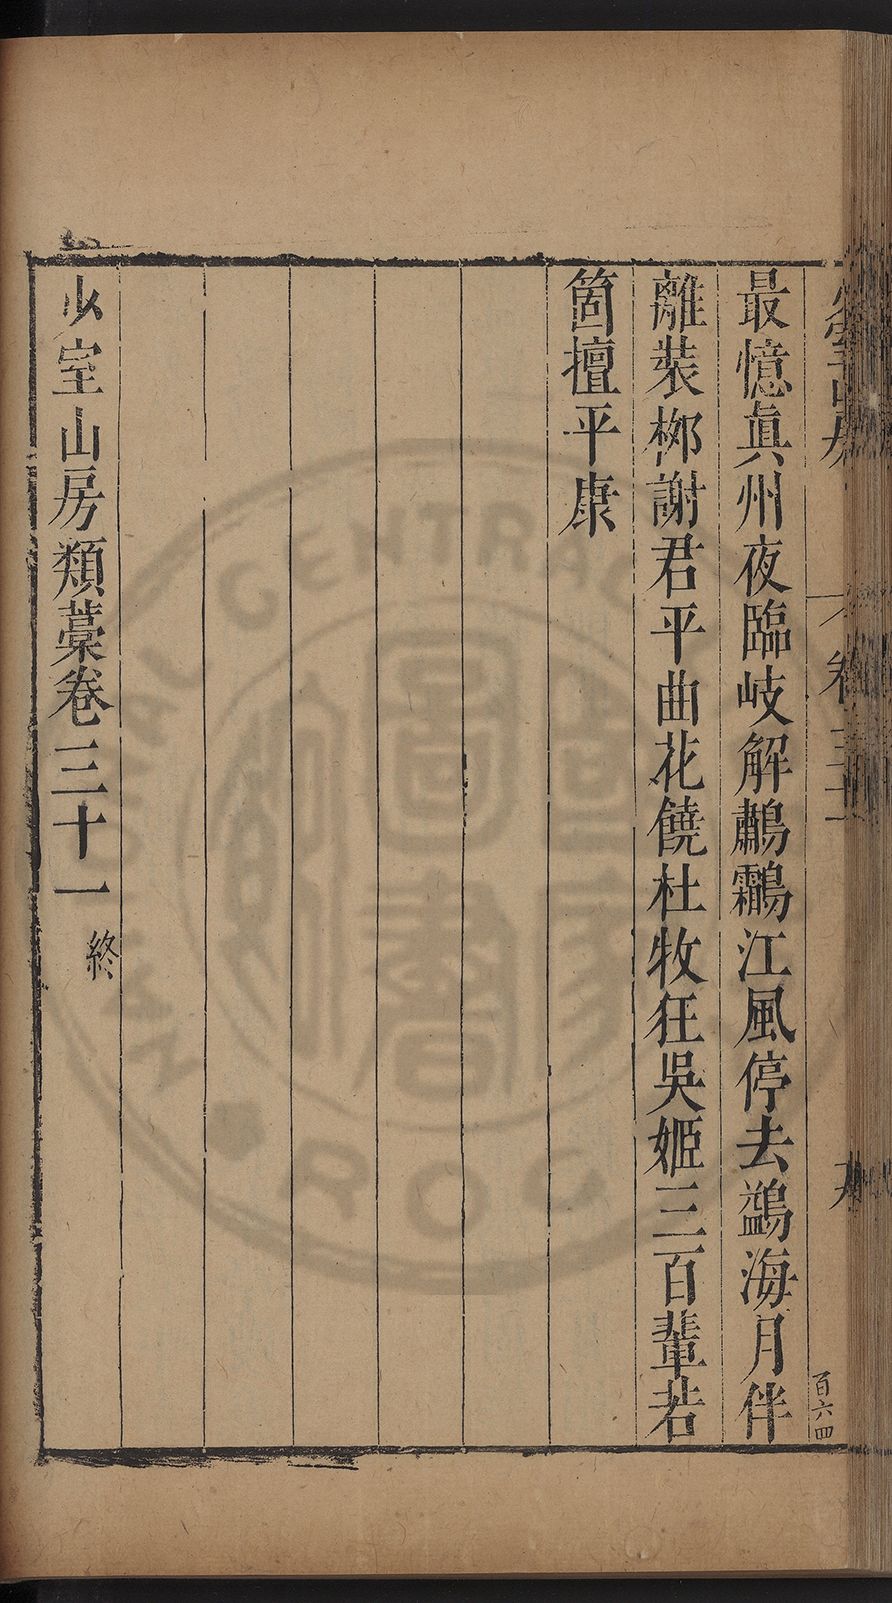 最憶眞州夜臨岐解鷫鸘江風停去鷁海月伴
離裝栁謝君平曲花饒杜牧狂吳姬三百輩若
箇擅平康
少室山房類藁卷三十一 終
卷三十一
百六四